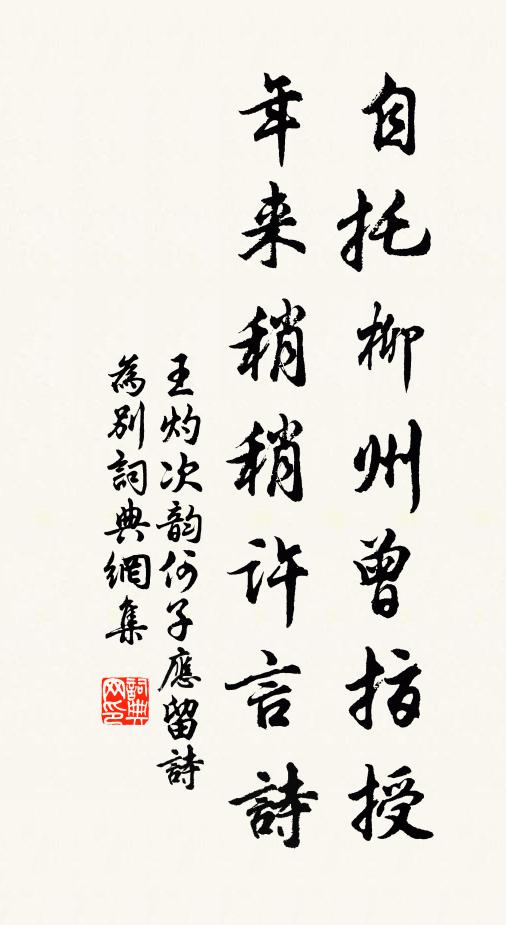 自托柳州曾指授
年来稍稍許言詩
王灼次韵何子應留詩
為別詞典網集
詞典网印